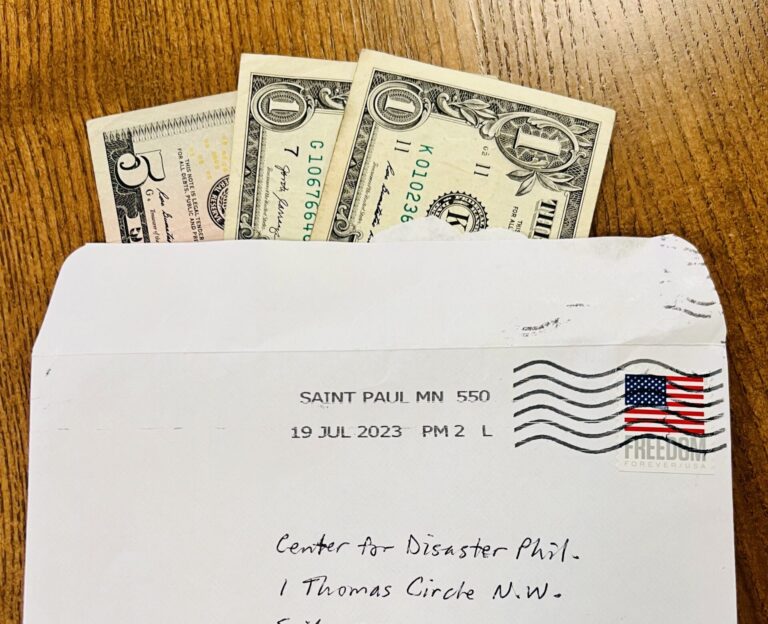 5
THIS NOTE IS LEGAL TENDER
FOR ALL DEBTS, PUBLIC AND PRI
1
7
G1067664
1
11
K010236
11
1
K
THIS
FOR AL
THE
SAINT PAUL MN 550
19 JUL 2023 PM 2 L
FREEDOM
FOREVER/USA
Center for Disaster Phil.
1 Thomas Circle N.W.